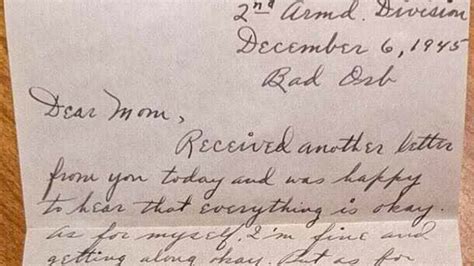 2nd Armd. Division
December 6, 1945
Bad Orb
Dear Mom,
Received another letter
from you today and was happy
to hear that everything is okay.
As for myself, I'm fine and
getting along okay. But as for